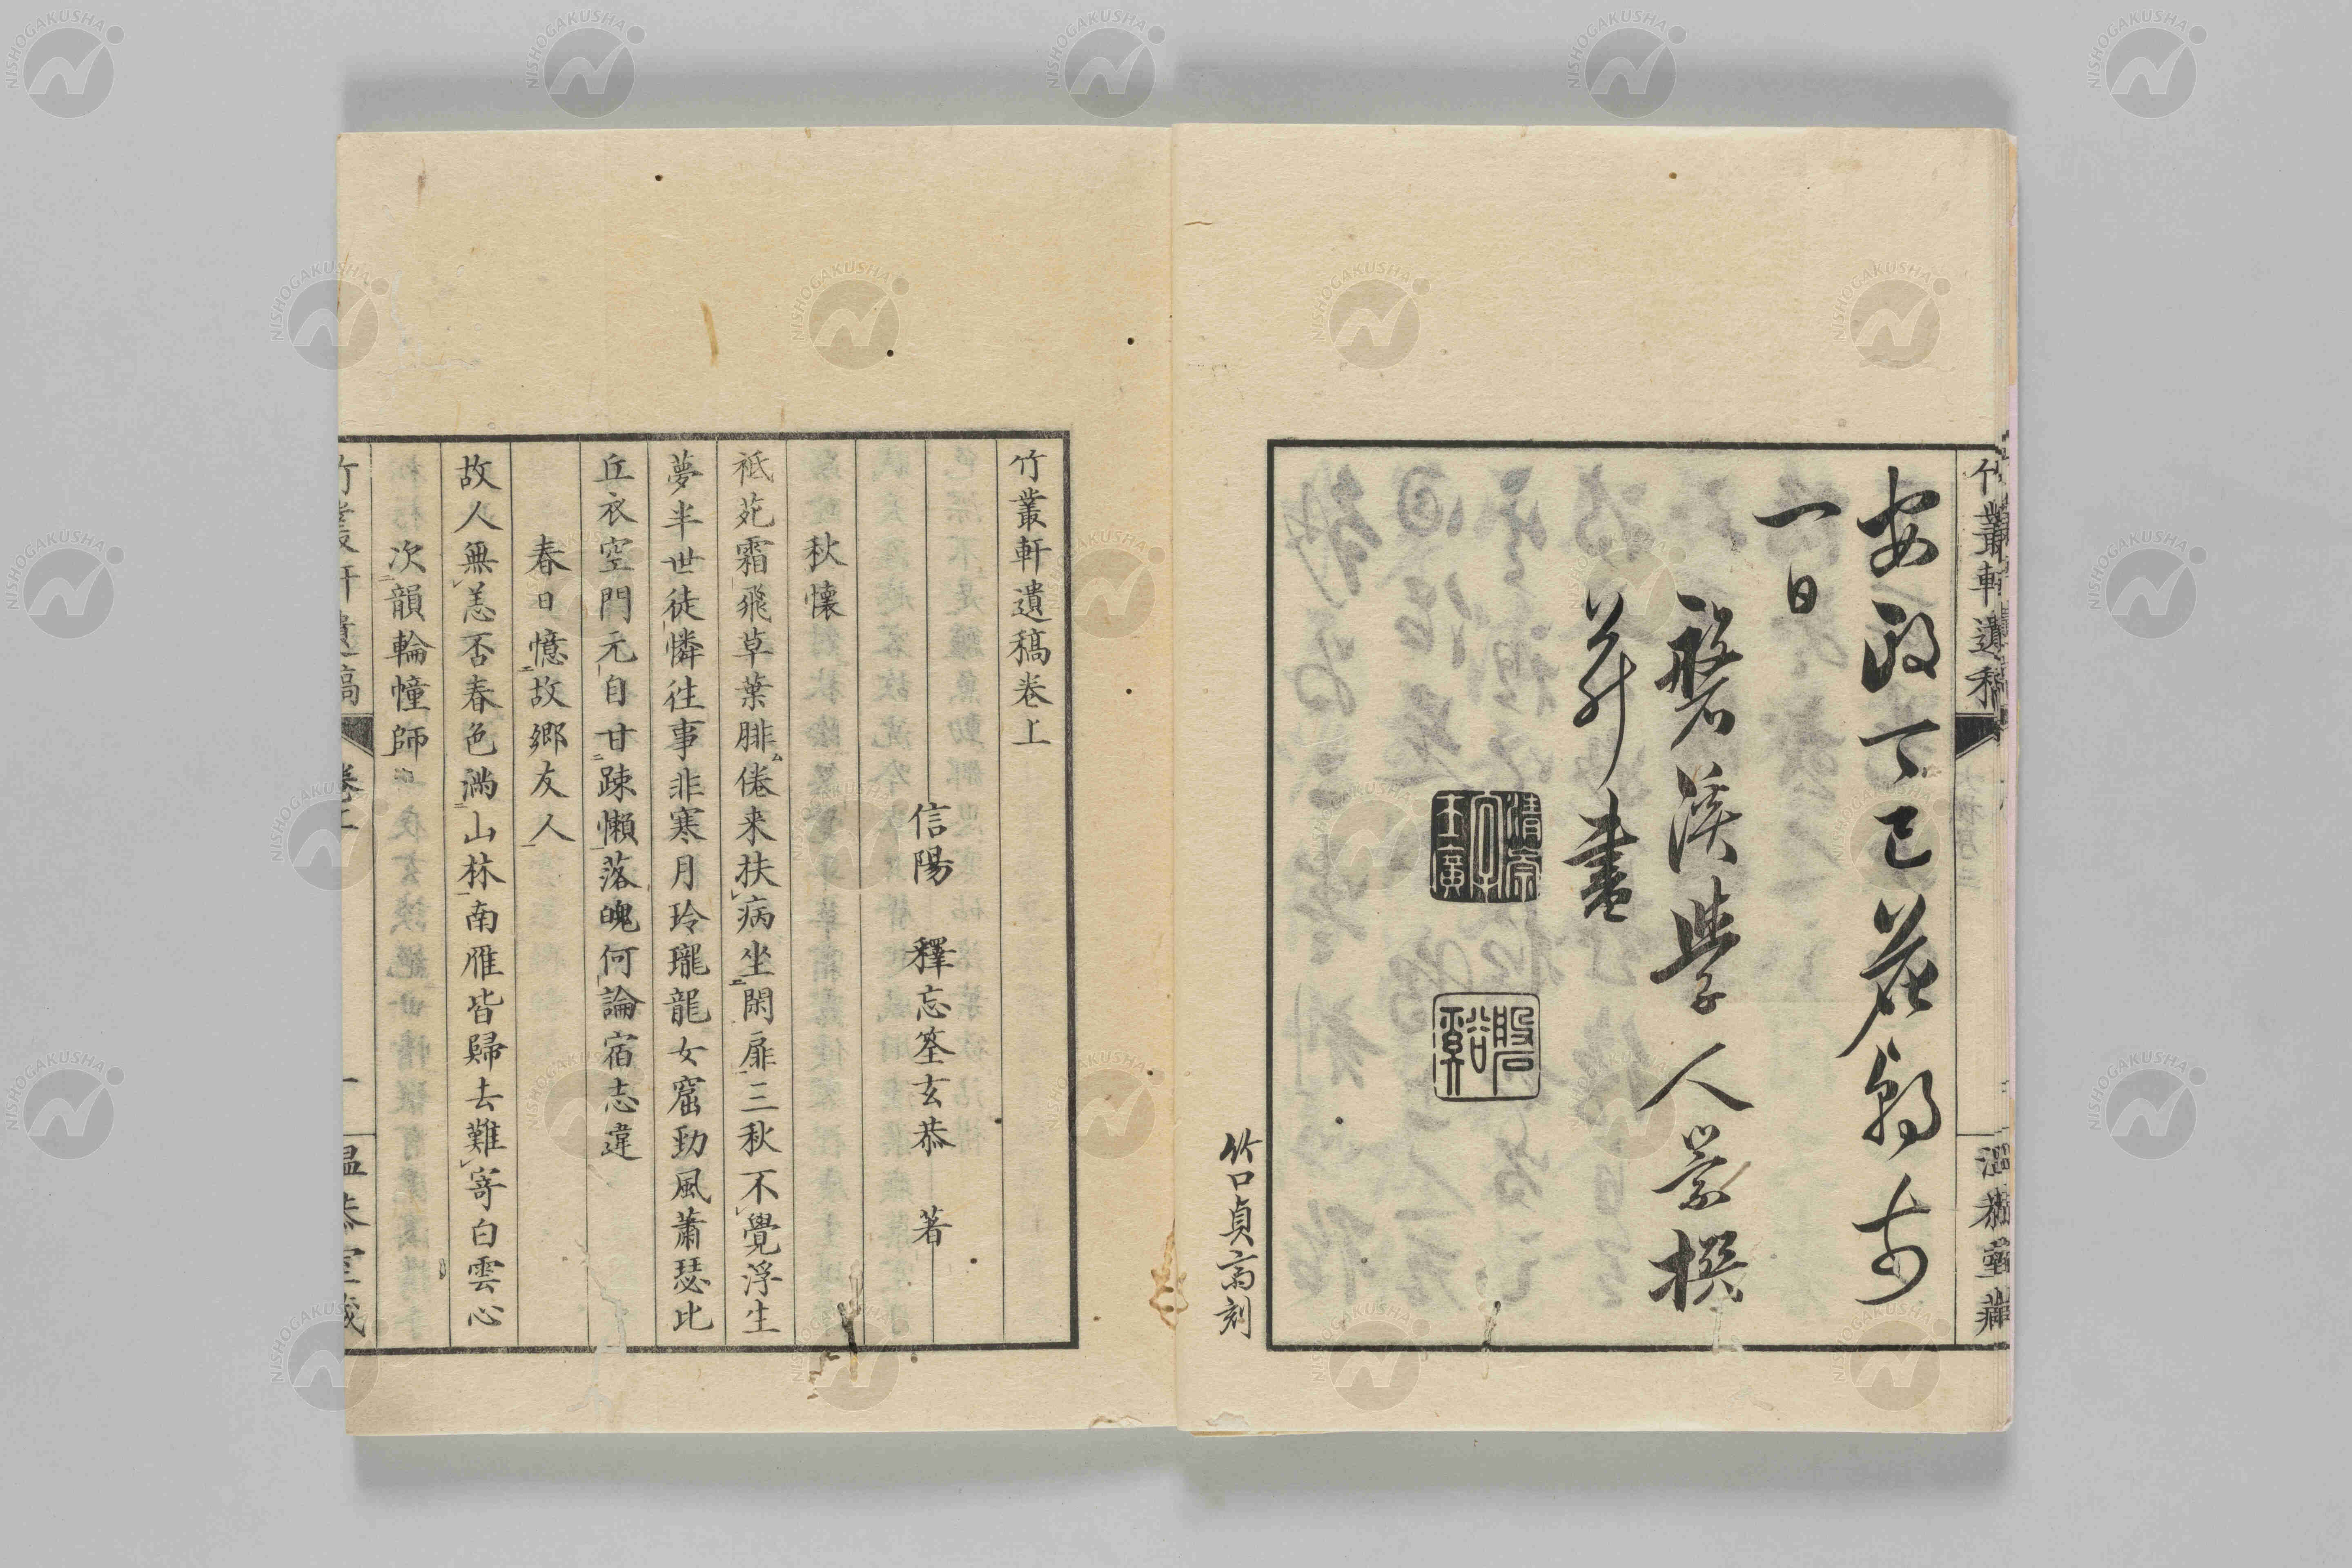 安政丁巳花朝前
一日
磐溪學人崇撰
并書
竹口貞齋刻
竹叢軒遺稿
溫恭堂藏
竹叢軒遺稿卷上
信陽 釋忘筌玄恭 著
秋懷
祇苑霜飛草葉腓倦来扶病坐閑扉三秋不覺浮生
夢半世徒憐往事非寒月玲瓏龍女窟勁風蕭瑟比
丘衣空門元自甘疎懶落魄何論宿志違
春日憶故郷友人
故人無恙否春色滿山林南雁皆歸去難寄白雲心
次韻輪幢師
竹叢軒遺稿 卷上 一 溫恭堂藏
NISHOGAKUSHA